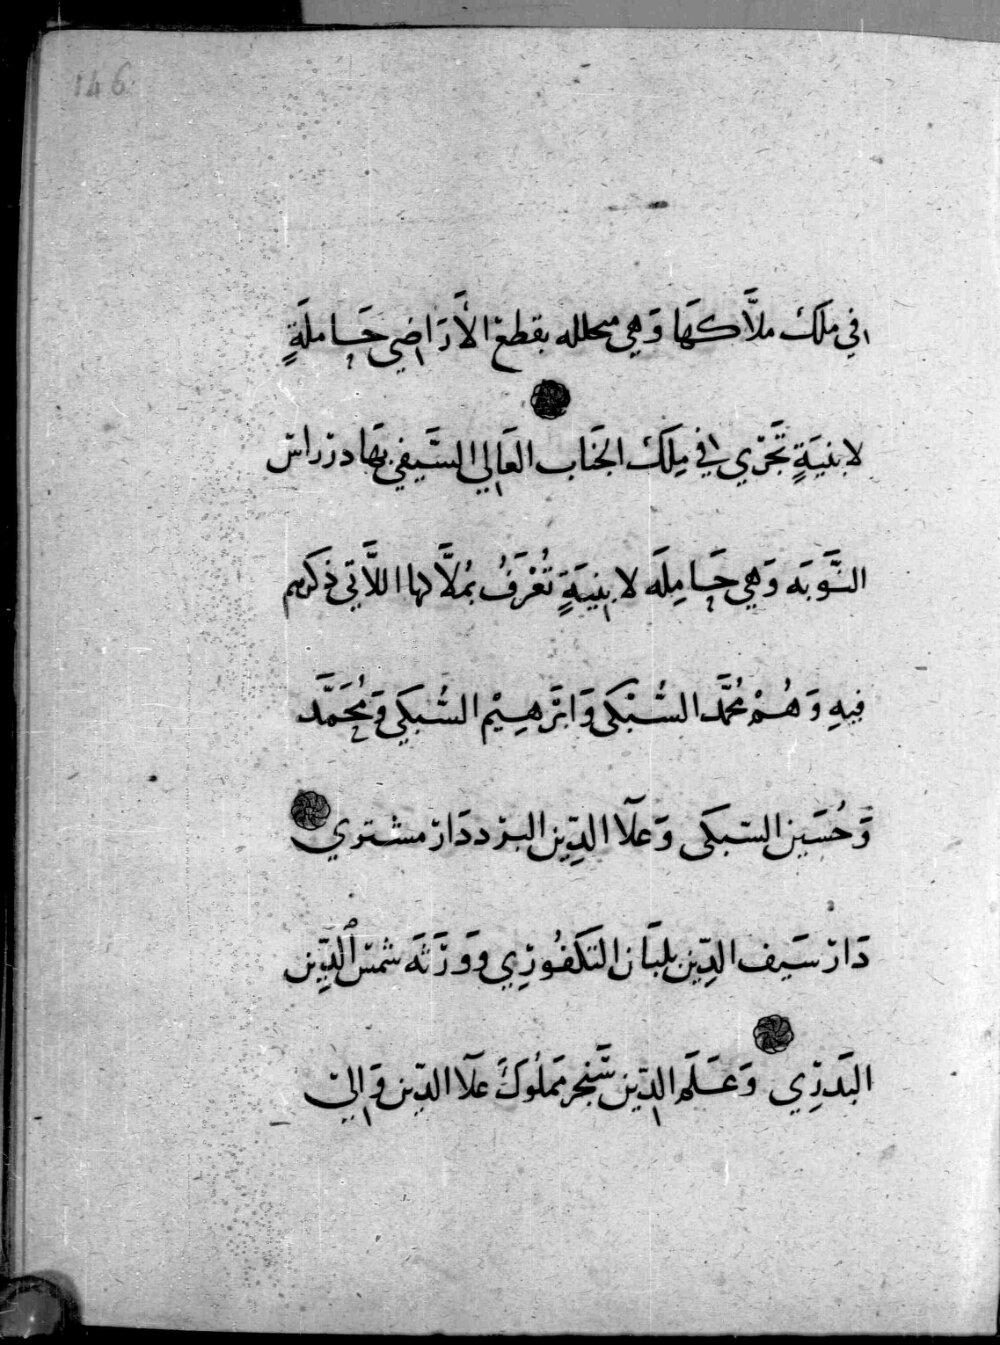 146
في ملك ملَّاكهَا وَهي محلله بقطع الأَرَاضِي حَاملَةٍ
لابنيَةٍ تَجْري في مِلك الجَناب العَالِي السَّيفي بهَادرْراس
النَّوبَه وَهي حَامِلَه لابنِيَةٍ تُعْرَفُ بمُلَّاكها اللَّاتي ذكرهم
فيهِ وَهُمْ مُحمَّد السُّبْكي وَابرَهِيْم السُّبكي وَمُحَمَّد
وَحُسَين السّبكى وَعلَآ الدِّين البرددَارْ مشتري
دَارْ سَيف الدِّين بلبَان التكفُورْي وَوَرَثَه شمسْ الدِّين
البَدرْي وَعَلَم الدِّين سَنجر مَملُوك علَآ الدِّين وَالي